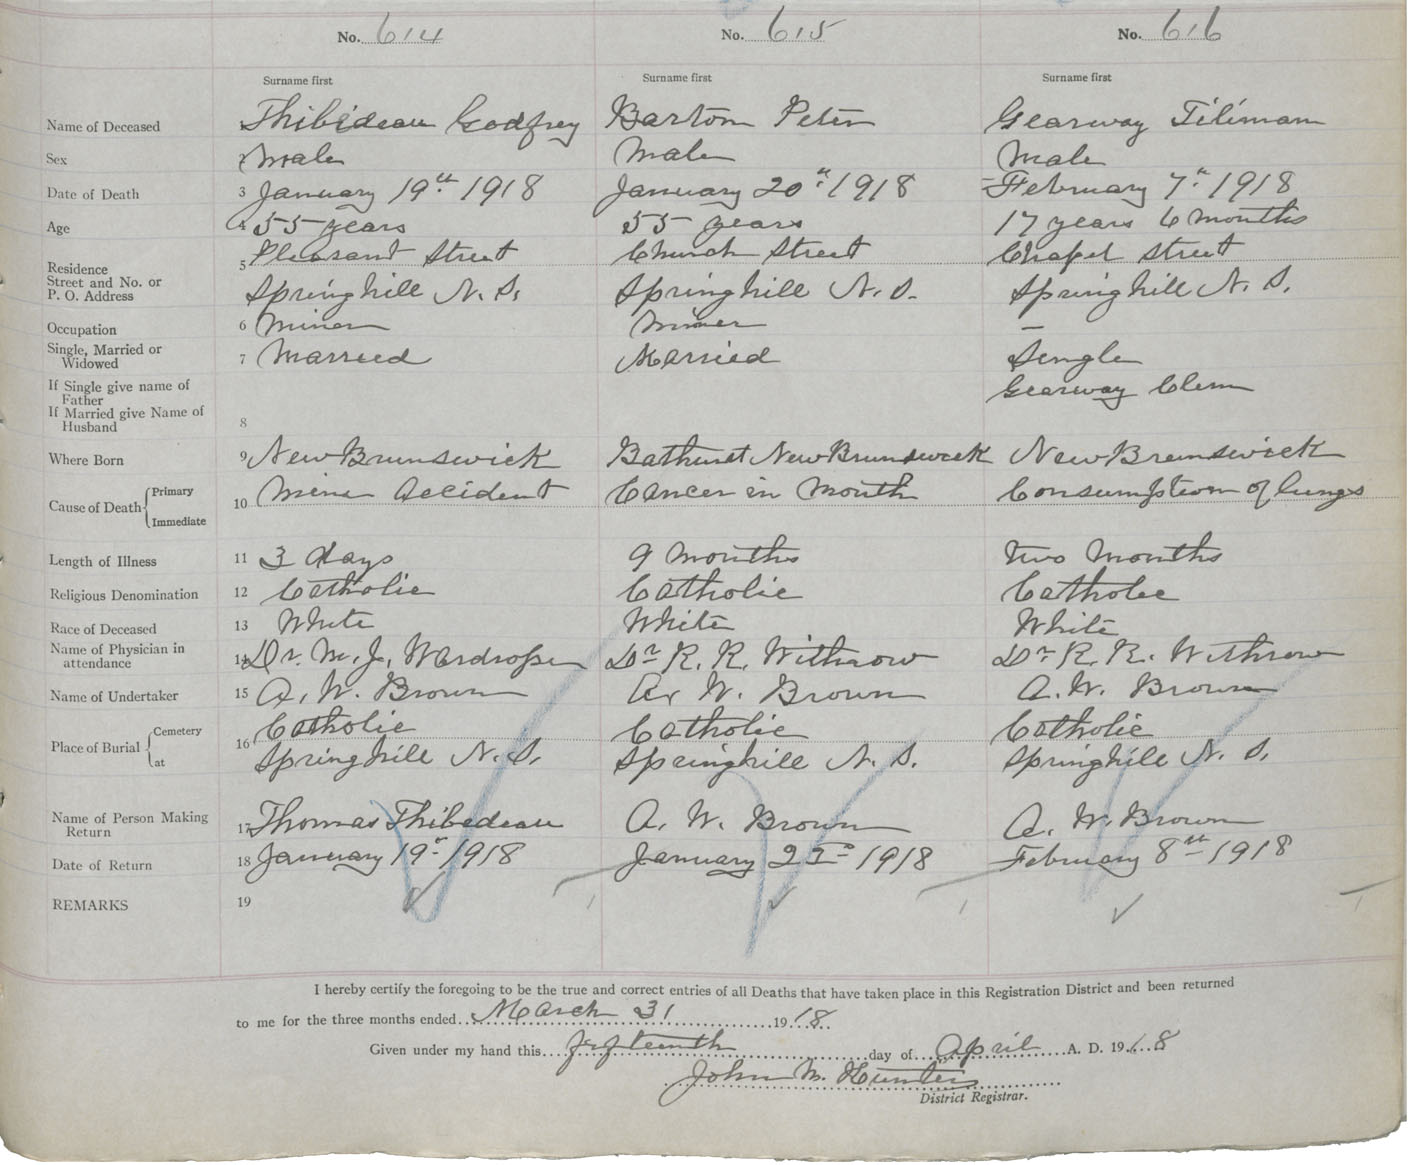 No. 614 No. 615 No. 616
Surname first Surname first Surname first
Name of Deceased Thibideau Godfrey Barton Peter Gearway Tiliman
Sex 2 Male Male Male
Date of Death 3 January 19th 1918 January 20th 1918 February 7th 1918
Age 4 55 years 55 years 17 years 6 months
5 Pleasant Street Church Street Chapel Street
Residence
Street and No. or
P. O. Address Springhill N. S. Springhill N. S. Springhill N. S.
Occupation 6 Miner Miner —
Single, Married or
Widowed 7 Married Married Single
If Single give name of
Father Gearway Clem
If Married give Name of
Husband 8
Where Born 9 New Brunswick Bathurst New Brunswick New Brunswick
Cause of Death Primary 10 Mine Accident Cancer in Mouth Consumption of lungs
Immediate
Length of Illness 11 3 days 9 months two Months
Religious Denomination 12 Catholic Catholic Catholic
Race of Deceased 13 White White White
Name of Physician in
attendance 14 Dr. M. J. Wardroper Dr R. R. Withrow Dr R. R. Withrow
Name of Undertaker 15 A. W. Brown A. W. Brown A. W. Brown
Place of Burial Cemetery 16 Catholic Catholic Catholic
at Springhill N. S. Springhill N. S. Springhill N. S.
Name of Person Making
Return 17 Thomas Thibedeau A. W. Brown A. W. Brown
Date of Return 18 January 19th 1918 January 1918 February 8th 1918
REMARKS 19
I hereby certify the foregoing to be the true and correct entries of all Deaths that have taken place in this Registration District and been returned
to me for the three months ended March 31 1918
Given under my hand this fifteenth day of April A. D. 1918
John M. Hunter
District Registrar.